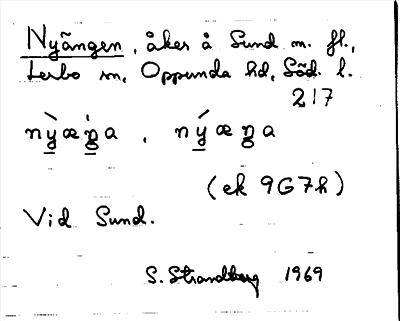 Nyängen, åker å Sund m. fl.,
Lerbo sn, Oppunda hd, Söd. l.
217
nỳ̲æŋ̲̍a, ný̲æŋa
(ek 9G7h)
Vid Sund.
S. Strandberg 1969